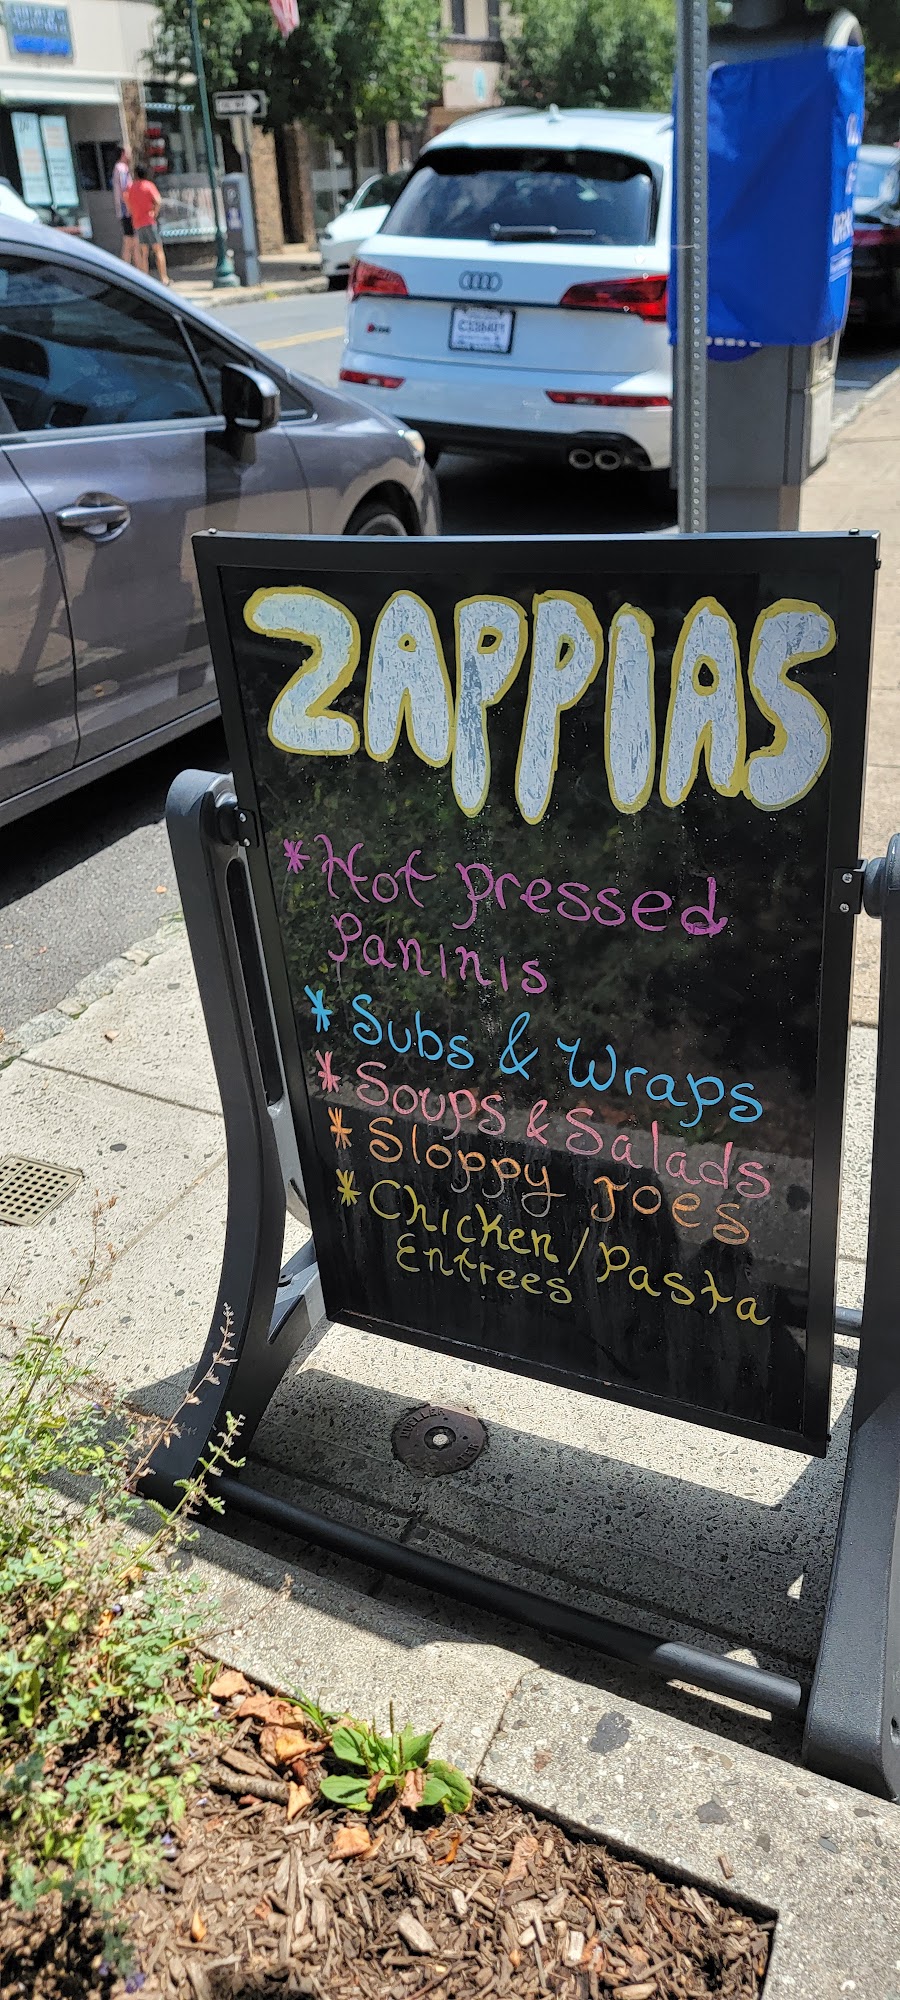 ZAPPIAS
* Hot pressed
Paninis
* Subs & Wraps
* Soups & Salads
* Sloppy Joes
* Chicken/Pasta
Entrees